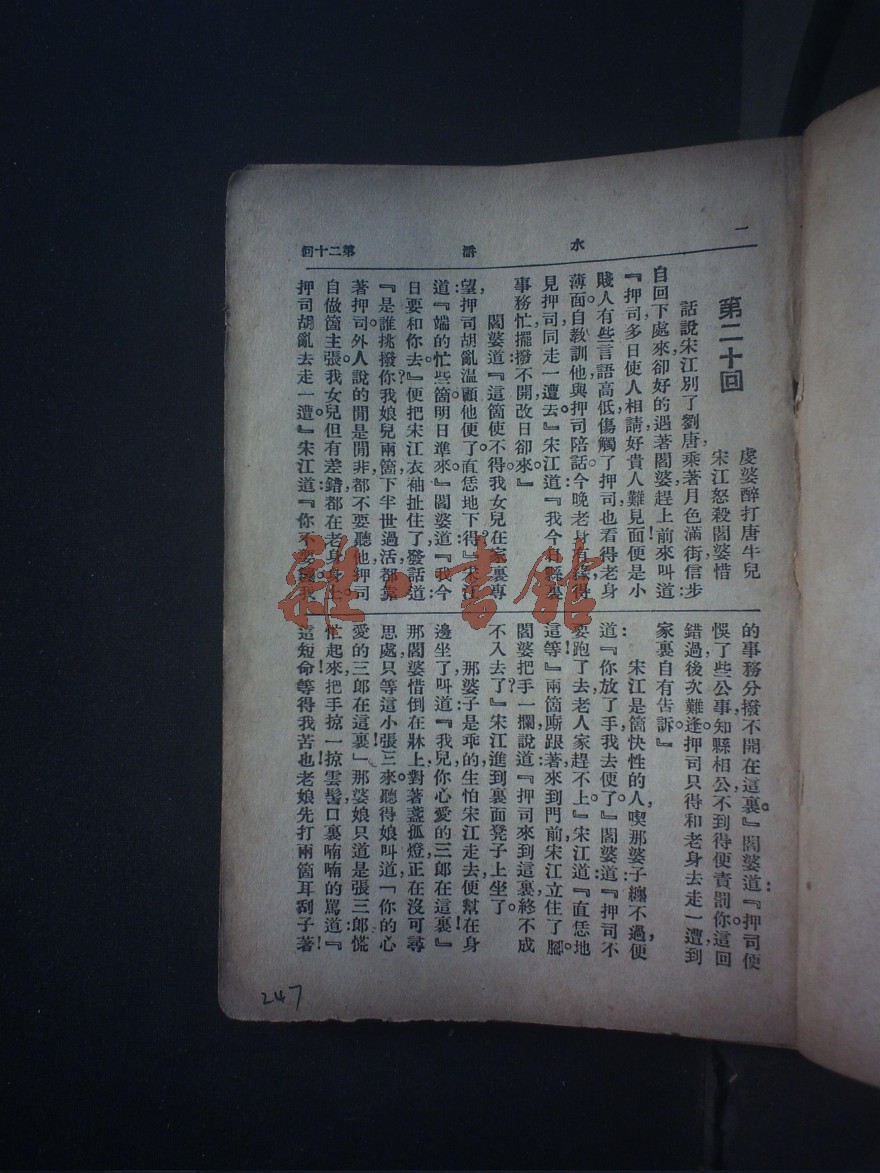 二
水滸
第二十回
第二十回
虔婆醉打唐牛兒
宋江怒殺閻婆惜
話說宋江別了劉唐，乘著月色滿街，信步
自回下處來。卻好的遇著閻婆，趕上前來叫道：
『押司，多日使人相請，好貴人，難見面！便是小
賤人有些言語高低，傷觸了押司，也看得老身
薄面，自教訓他與押司陪話。今晚老身有緣，得
見押司，同走一遭去。』宋江道：『我今日縣裏
事務忙，擺撥不開，改日卻來。』
閻婆道：『這箇使不得。我女兒在家裏專
望，押司胡亂溫顧他便了。直恁地下得？』宋江
道：『端的忙些箇。明日準來。』閻婆道：『我今
日要和你去。』便把宋江衣袖扯住了，發話道：
『是誰挑撥你？我娘兒兩箇下半世過活都靠
著押司。外人說的閒是閒非，都不要聽他，押司
自做箇主張。我女兒但有差錯，都在老身身上。
押司胡亂去走一遭。』宋江道：『你不要纏，我
的事務分撥不開在這裏。』閻婆道：『押司便
悞了些公事，知縣相公不到得便責罰你。這回
錯過，後次難逢。押司只得和老身去走一遭，到
家裏自有告訴。』
宋江是箇快性的人，喫那婆子纏不過，便
道：『你放了手，我去便了。』閻婆道：『押司不
要跑了去，老人家趕不上。』宋江道：『直恁地
這等！』兩箇厮跟著來到門前，宋江立住了腳。
閻婆把手一攔，說道：『押司來到這裏，終不成
不入去了？』宋江進到裏面凳子上坐了。
那婆子是乖的，生怕宋江走去，便幫在身
邊坐了，叫道：『我兒，你心愛的三郎在這裏！』
那閻婆惜倒在牀上，對著盞孤燈，正在沒可尋
思處，只等這小張三來。聽得娘叫道，「你的心
愛的三郎在這裏！」那婆娘只道是張三郎，慌
忙起來，把手掠一掠雲髻，口裏喃喃的罵道：『
這短命！等得我苦也！老娘先打兩箇耳刮子著！
247
雜·書館